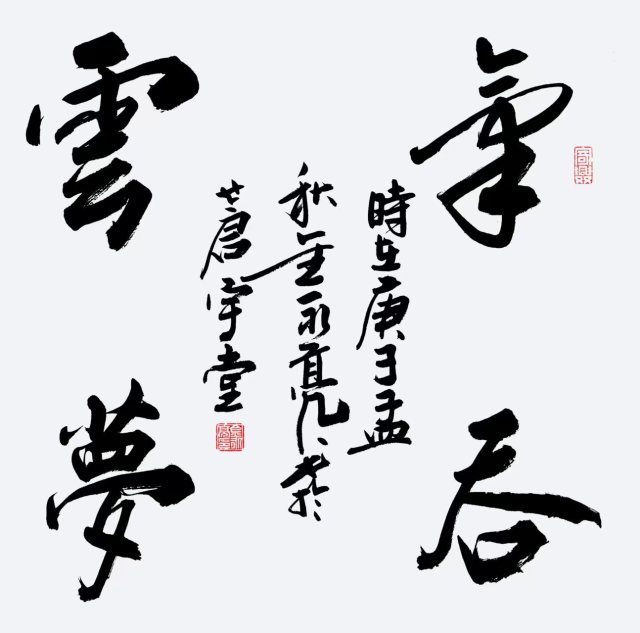 氣吞
雲夢
時在庚子孟
秋金永亮書於
蒼宇堂